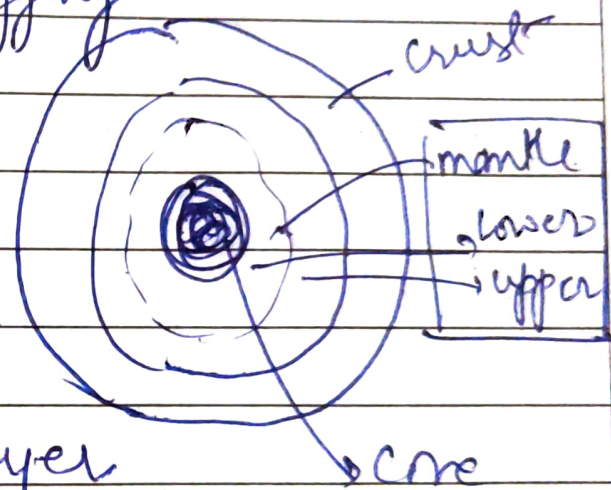 crust
mantle
lower
upper
yer
core